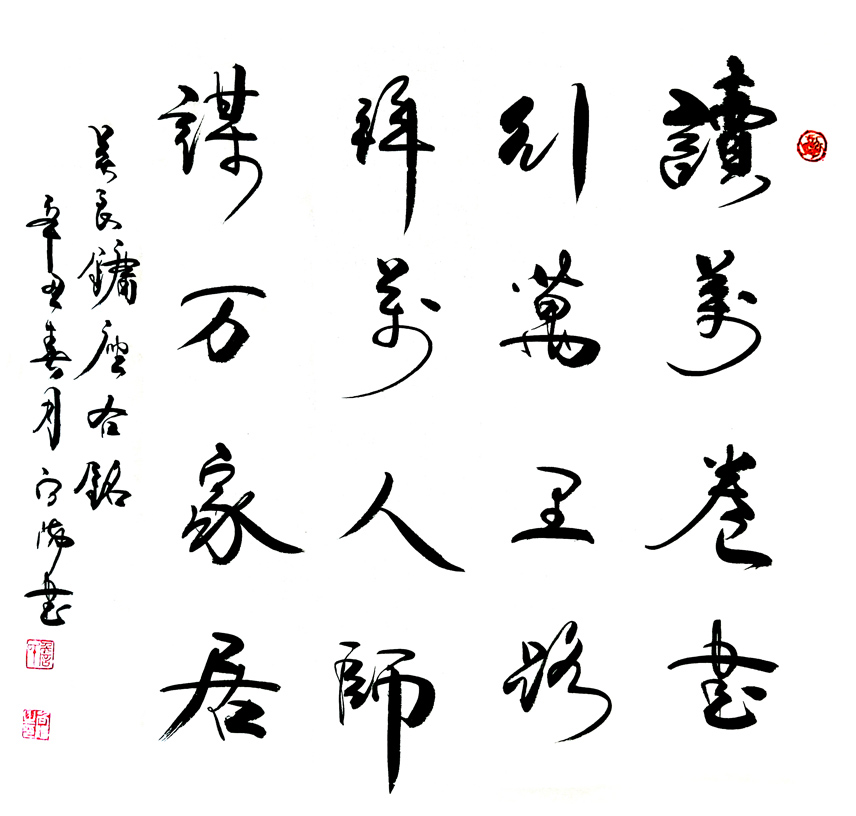 讀萬卷書
引萬里路
拜萬人師
謀万家居
吴良鏞座右銘
辛丑春月书